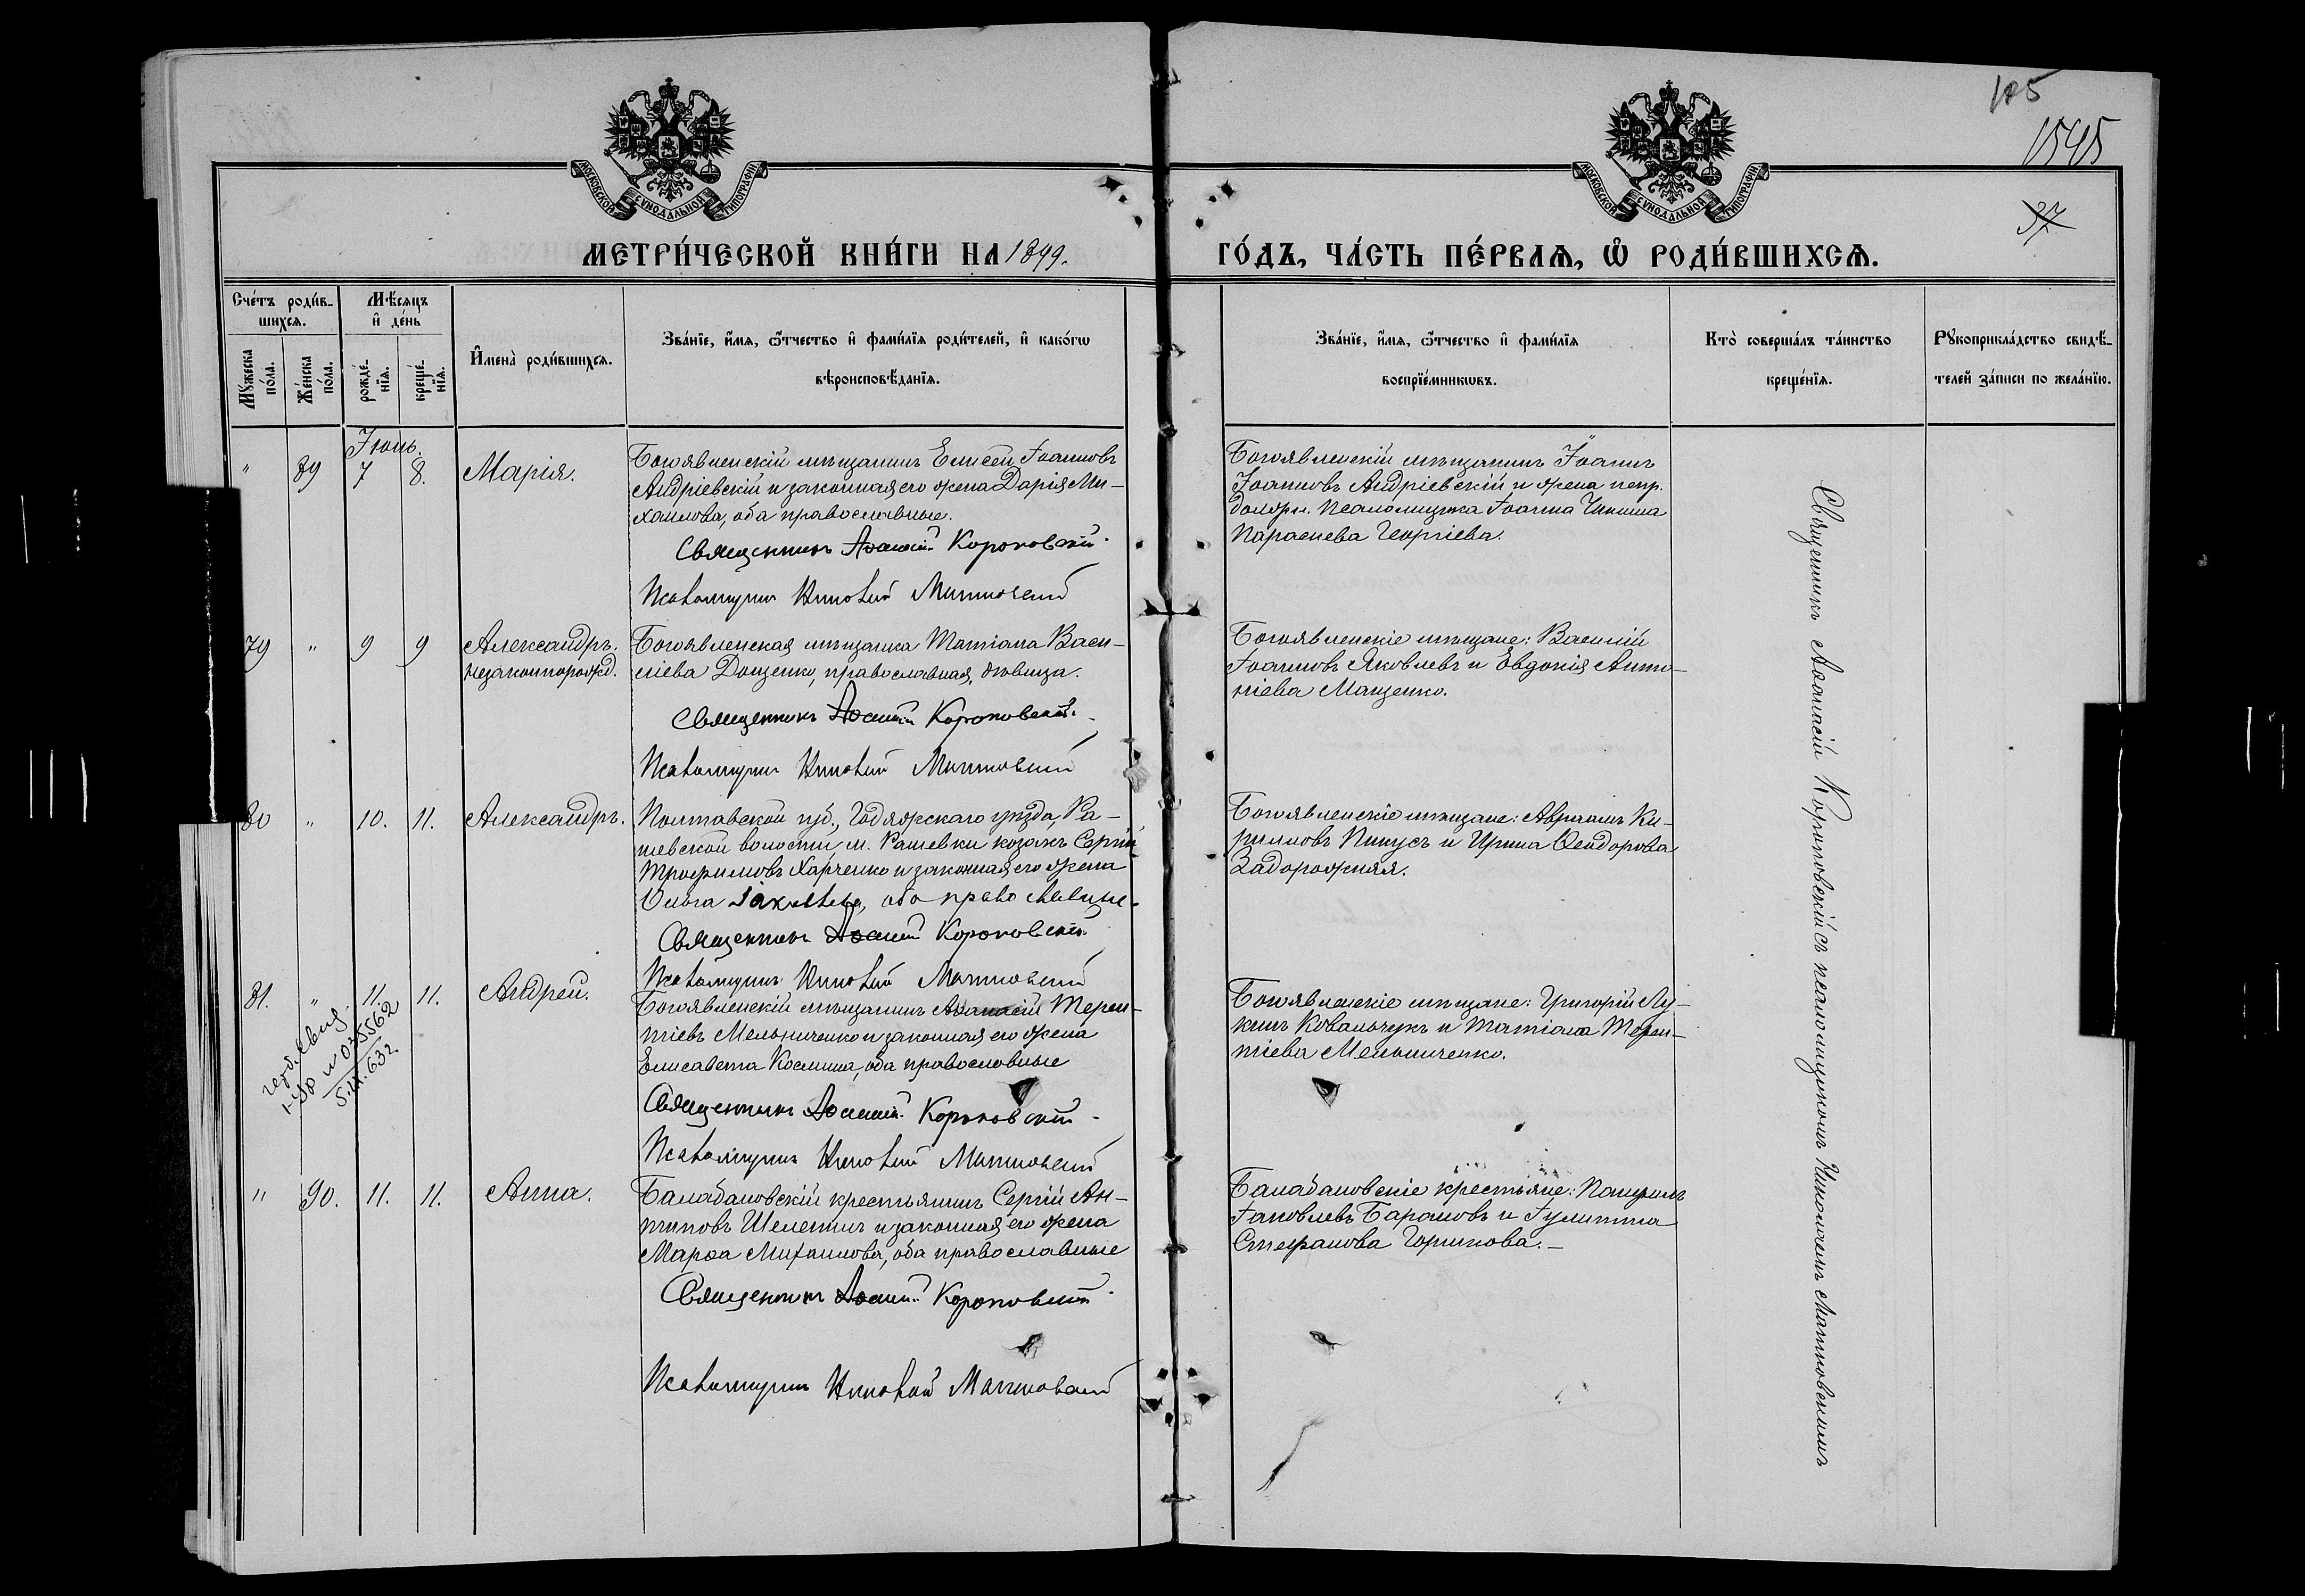 105
1545
37
МОСКОВСКОЙ СѴНОДАЛЬНОЙ ТИПОГРАФІИ
МОСКОВСКОЙ СѴНОДАЛЬНОЙ ТИПОГРАФІИ
МЕТРИ́ЧЕСКОЙ КНИ́ГИ НА 1899.
ГО́ДЪ, ЧА́СТЬ ПЕ́РВАѦ, Ѽ РОДИ́ВШИХСѦ.
Сче́тъ роди́в-
шихсѧ.
Мꙋжеска по́ла.
Же́нска по́ла.
Мѣ́сяцъ
и҆ де́нь
рожде́-
нїѧ.
креще́-
нїѧ.
И҆мена̀ роди́вшихсѧ.
Зва́нїе, и҆́мѧ, ѻ҆́тчество и҆ фами́лїѧ роди́телей, и҆ како́гѡ
вѣроисповѣ́данїѧ.
Зва́нїе, и҆́мѧ, ѻ҆́тчество и҆ фами́лїѧ
воспрїе́мникѡвъ.
Кто̀ соверша́лъ та́инство
креще́нїѧ.
Рꙋкоприкла́дство свидѣ́-
телей за́писи по жела́нїю.
Іюль.
" 89 7 8. Марія.
Богоявленскій мѣщанинъ Елисей Іоанновъ
Андріевскій и законная его жена Дарія Ми-
хаилова, оба православные.
Священникъ Аѳанасій Короповскій.
Псаломщикъ Николай Матковскій
Богоявленскій мѣщанинъ Іоаннъ
Іоанновъ Андріевскій и жена
псаломщика Іоанна
Параскева Георгіева.
79 " 9 9 Александръ.
незаконнорожд.
Богоявленская мѣщанка Татіана Васи-
ліева Доценко, православная, дѣвица.
Священникъ Аѳанасій Короповскій.
Псаломщикъ Николай Матковскій
Богоявленскіе мѣщане: Василій
Іоанновъ Яковлевъ и Евдокія Анто-
ніева Маценко.
80 " 10. 11. Александръ.
Полтавской губ., Годяжскаго уѣзда, Ра-
шевской волости м. Рашевки козакъ Сергій
Трофимовъ Харченко и законная его жена
Ольга Іаковлева, оба православные.
Священникъ Аѳанасій Короповскій.
Псаломщикъ Николай Матковскій
Богоявленскіе мѣщане: Авраамъ Ки-
рилловъ Пикусъ и Ирина Ѳеодорова
Задорожняя.
81. " 11. 11. Андрей.
035562
5.IX.632
Богоявленскій мѣщанинъ Аѳанасій Терен-
тіевъ Мельниченко и законная его жена
Елисавета Космина, оба православные
Священникъ Аѳанасій Короповскій.
Псаломщикъ Николай Матковскій
Богоявленскіе мѣщане: Григорій Лу-
кинъ Ковальчукъ и Татіана Терен-
тіева Мельниченко.
" 90. 11. 11. Анна.
Балабановскій крестьянинъ Сергій Ан-
типовъ Шелепинъ и законная его жена
Марѳа Михаилова, оба православные
Священникъ Аѳанасій Короповскій.
Псаломщикъ Николай Матковскій
Балабановскіе крестьяне:
Іаковлевъ Барановъ и Іулитта
Стефанова Горшкова.
Священникъ Аѳанасій Короповскій съ псаломщикомъ Николаемъ Матковскимъ